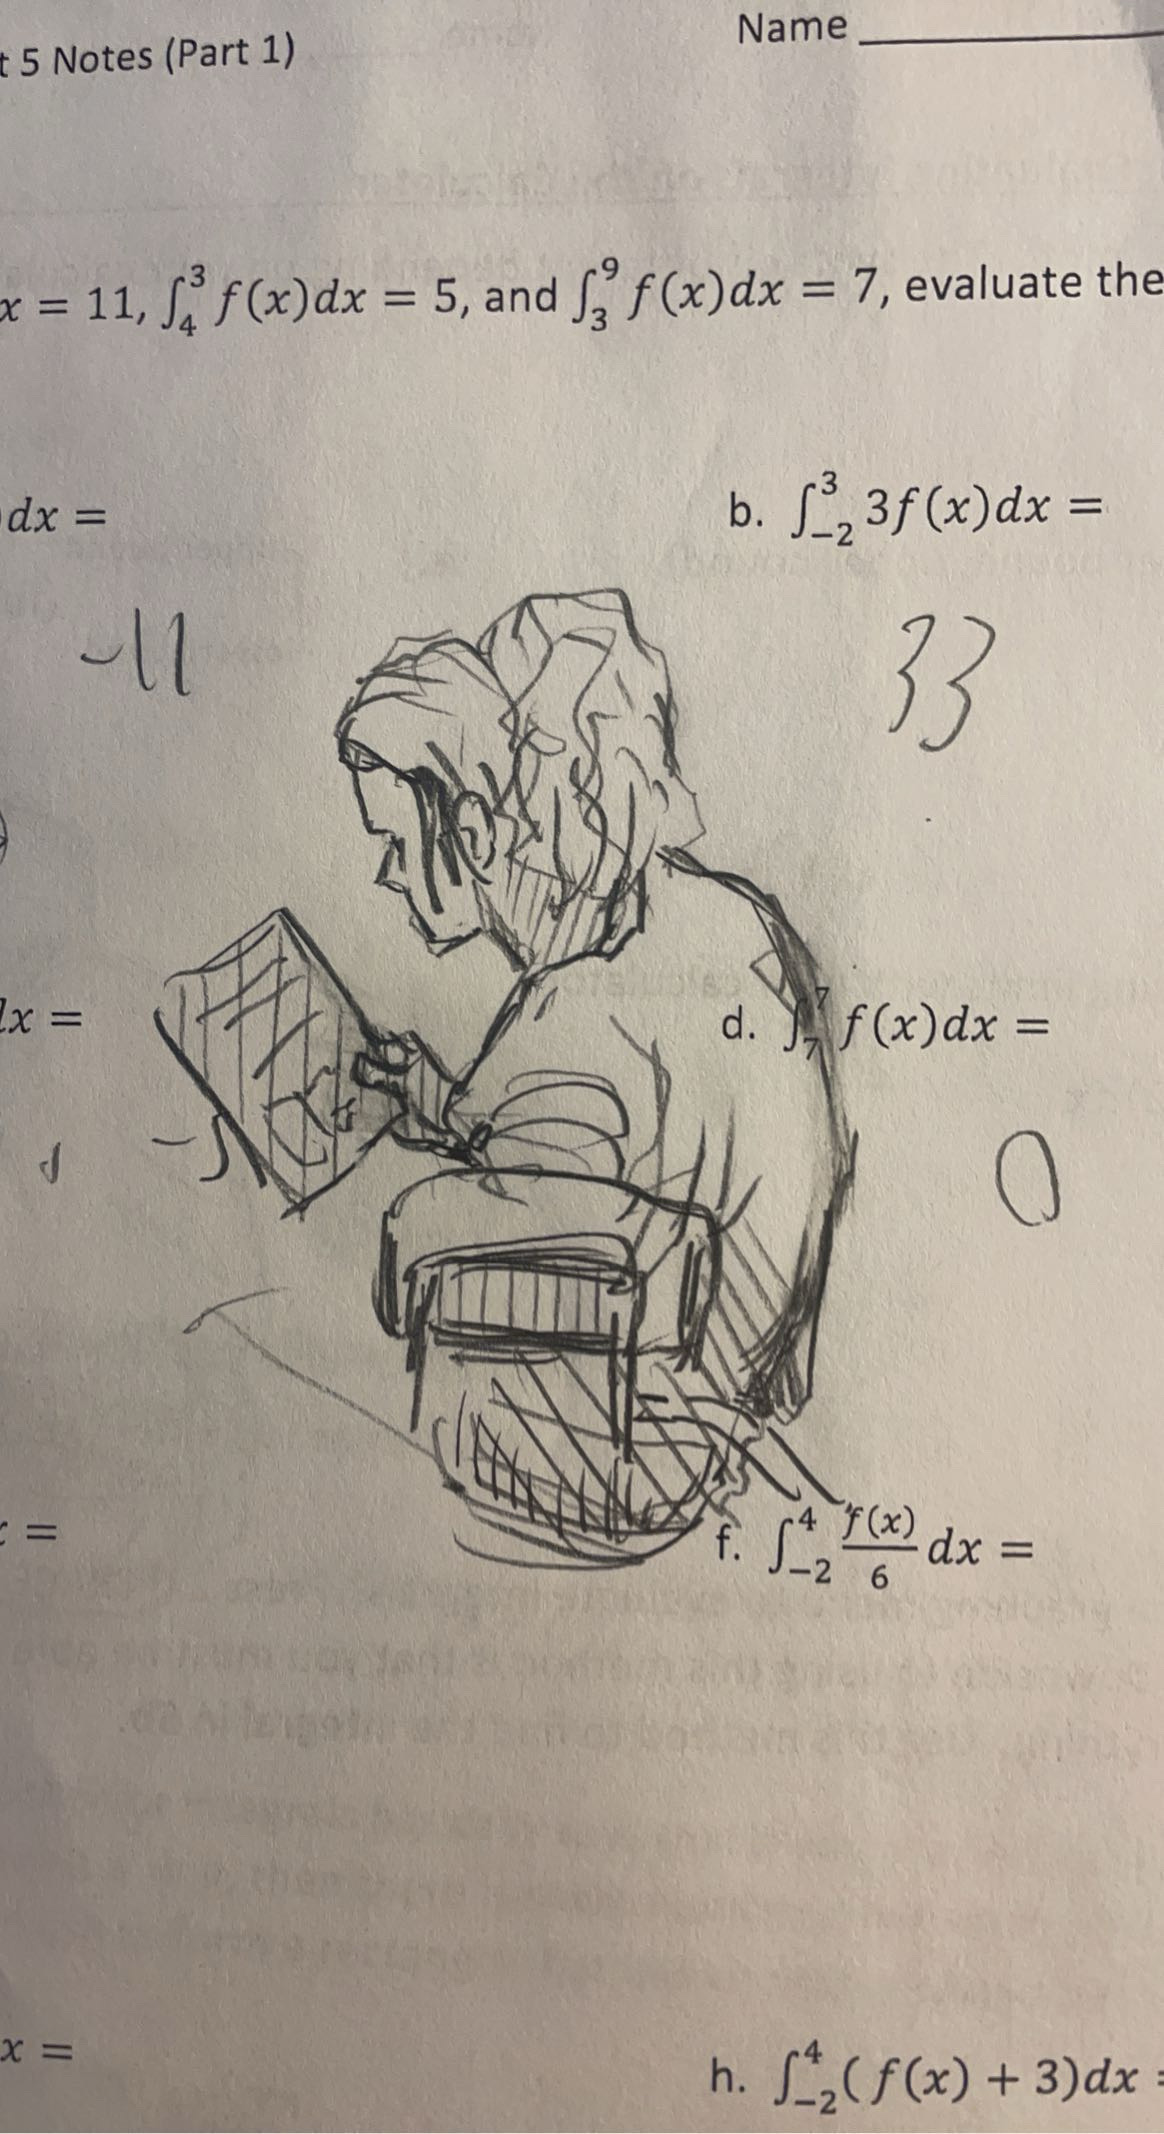 t 5 Notes (Part 1) Name
x = 11, ∫₄³ f(x)dx = 5, and ∫₃⁹ f(x)dx = 7, evaluate the
dx = b. ∫₋₂³ 3f(x)dx =
-11 33
dx = d. ∫₇⁷ f(x)dx =
-5 0
= f. ∫₋₂⁴ f(x)/6 dx =
x = h. ∫₋₂⁴ (f(x) + 3)dx =